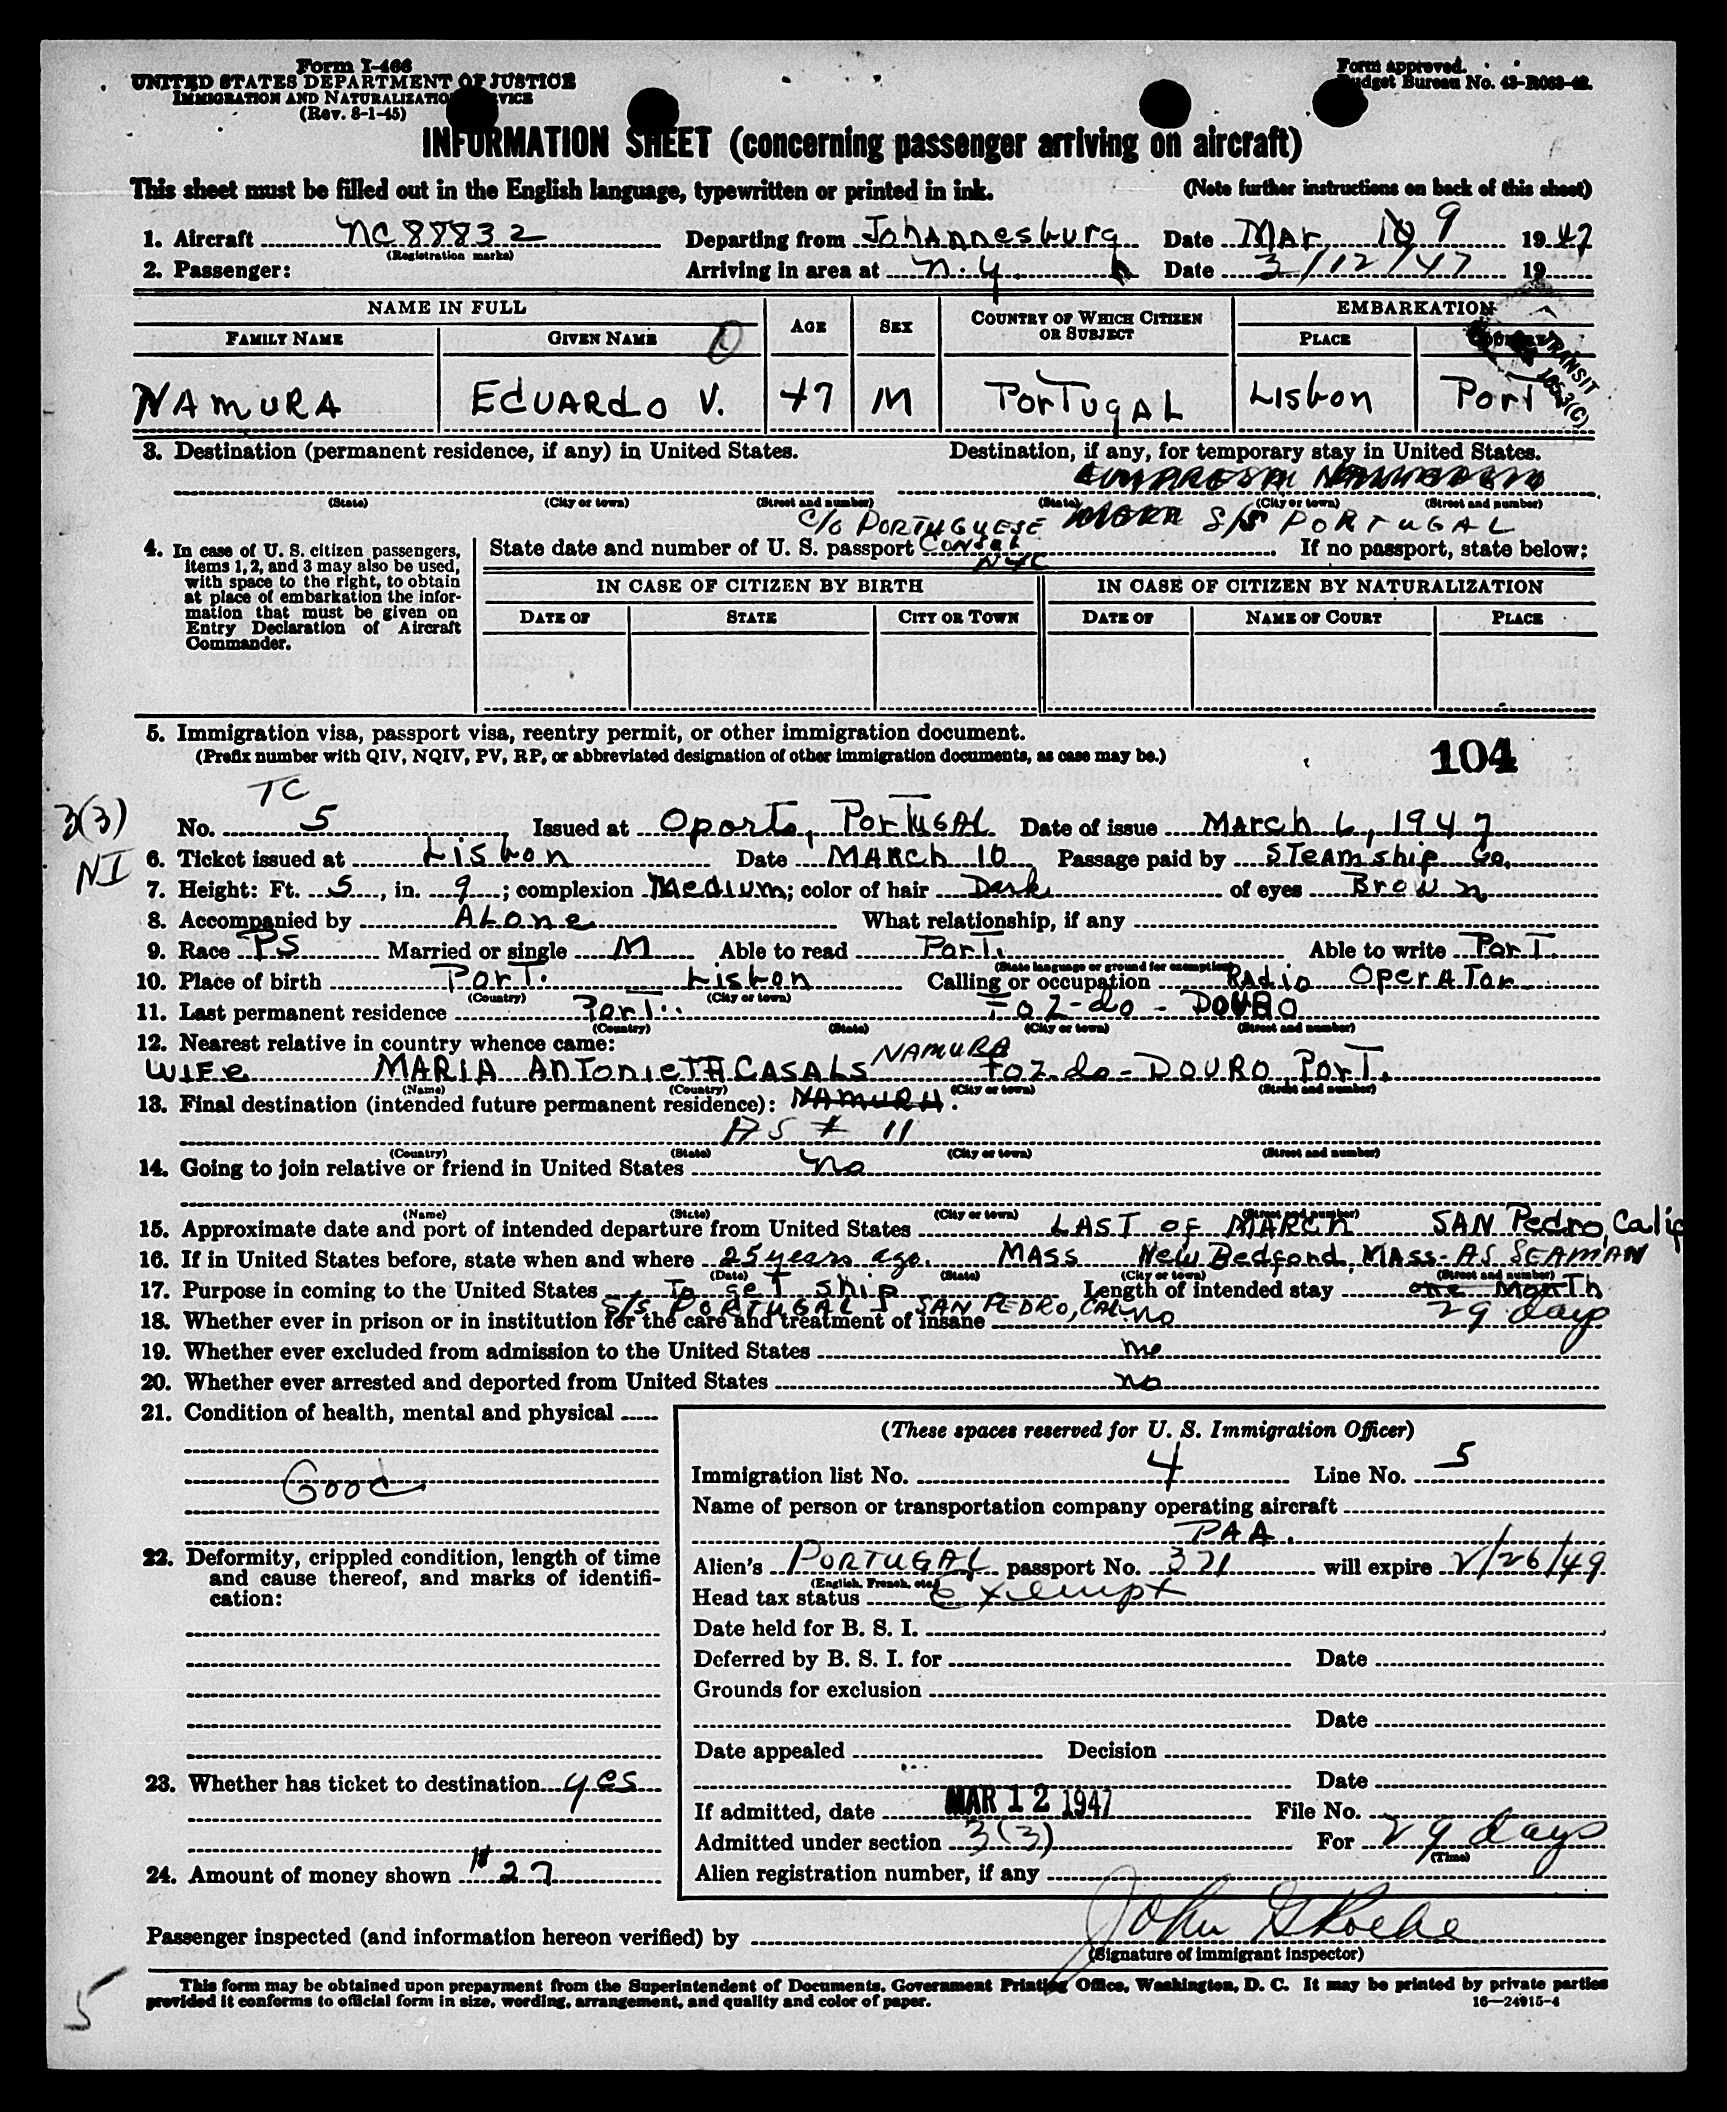 Form I-466
UNITED STATES DEPARTMENT OF JUSTICE
IMMIGRATION AND NATURALIZATION SERVICE
(Rev. 8-1-45)
Form approved.
Budget Bureau No. 43-R063-42.
INFORMATION SHEET (concerning passenger arriving on aircraft)
This sheet must be filled out in the English language, typewritten or printed in ink. (Note further instructions on back of this sheet)
1. Aircraft NC 88832 Departing from Johannesburg Date Mar 9 1947
(Registration marks)
2. Passenger: Arriving in area at N.Y. Date 3/12/47 19
NAME IN FULL AGE SEX COUNTRY OF WHICH CITIZEN OR SUBJECT EMBARKATION
FAMILY NAME GIVEN NAME PLACE COUNTRY
TRANSIT
NAMURA EDUARDO V. 47 M PORTUGAL Lisbon Port
3. Destination (permanent residence, if any) in United States. Destination, if any, for temporary stay in United States.
(State) (City or town) (Street and number) (State) (City or town) (Street and number)
c/o PORTUGUESE S/S PORTUGAL
4. In case of U. S. citizen passengers, items 1, 2, and 3 may also be used, with space to the right, to obtain at place of embarkation the information that must be given on Entry Declaration of Aircraft Commander.
State date and number of U. S. passport Consul If no passport, state below:
NYC
IN CASE OF CITIZEN BY BIRTH IN CASE OF CITIZEN BY NATURALIZATION
DATE OF STATE CITY OR TOWN DATE OF NAME OF COURT PLACE
5. Immigration visa, passport visa, reentry permit, or other immigration document.
(Prefix number with QIV, NQIV, PV, RP, or abbreviated designation of other immigration documents, as case may be.)
104
TC
3(3)
No. 5 Issued at Oporto, PORTUGAL Date of issue MARCH 6, 1947
NI
6. Ticket issued at Lisbon Date MARCH 10 Passage paid by STEAMship Co.
7. Height: Ft. 5, in. 9; complexion Medium; color of hair Dark of eyes Brown
8. Accompanied by ALone What relationship, if any
9. Race PS Married or single M Able to read PorT. Able to write PorT.
(State language or ground for exemption)
10. Place of birth PorT. Lisbon Calling or occupation RAdio OperATor
(Country) (City or town)
11. Last permanent residence PorT. Foz-do-DOURO
(Country) (State) (City or town) (Street and number)
12. Nearest relative in country whence came:
NAMURA
WIFE MARIA ANTONIETTA CASALS Foz-do-DOURO PorT.
(Name) (Country) (City or town) (Street and number)
13. Final destination (intended future permanent residence): NAMURA.
AS # 11
(Country) (State) (City or town) (Street and number)
14. Going to join relative or friend in United States no
(Name) (State) (City or town) (Street and number)
15. Approximate date and port of intended departure from United States LAST of MARCH SAN Pedro, Calif
16. If in United States before, state when and where 25 years ago. MASS New Bedford Mass-AS SEAMAN
(Date) (State) (City or town) (Street and number)
17. Purpose in coming to the United States To get ship Length of intended stay one MONTH
S/S PORTUGAL SAN PEDRO, CAL. 29 days
18. Whether ever in prison or in institution for the care and treatment of insane no
19. Whether ever excluded from admission to the United States no
20. Whether ever arrested and deported from United States no
21. Condition of health, mental and physical
Good
22. Deformity, crippled condition, length of time and cause thereof, and marks of identification:
23. Whether has ticket to destination yes
24. Amount of money shown $27
(These spaces reserved for U. S. Immigration Officer)
Immigration list No. 4 Line No. 5
Name of person or transportation company operating aircraft
PAA.
Alien's PORTUGAL passport No. 321 will expire 2/26/49
(English, French, etc.)
Head tax status Exempt
Date held for B. S. I.
Deferred by B. S. I. for Date
Grounds for exclusion
Date
Date appealed Decision
Date
If admitted, date MAR 12 1947 File No.
Admitted under section 3(3) For 29 days
(Time)
Alien registration number, if any
Passenger inspected (and information hereon verified) by John
(Signature of immigrant inspector)
5
This form may be obtained upon prepayment from the Superintendent of Documents, Government Printing Office, Washington, D. C. It may be printed by private parties
provided it conforms to official form in size, wording, arrangement, and quality and color of paper. 16—24915-4